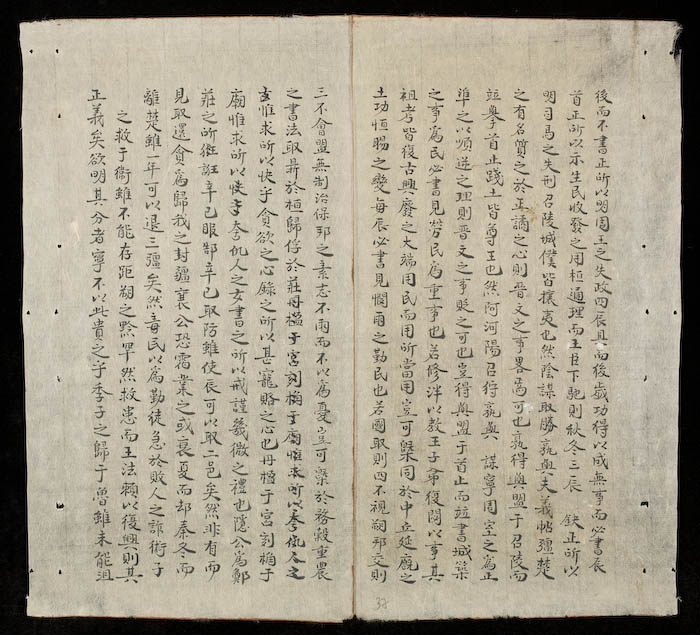 後而不書正所以明周王之失政四辰具而後歲功得以成無事而必書辰
首正所以示生民收發之用桓通理而王臣下馳則秋冬三辰 鈌正所以
明司馬之失刑召陵城僕皆攘夷也然陰謀取勝孰與夫義帖彊楚
之有名質之於正譎之心則晋文之事畧焉可也孰得與盟于召陵而
並擧首止踐土皆尊王也然阿河陽召狩孰與 謀寧周室之爲正
準之以順逆之理則晋文之事貶之可也豈得與盟于首止而竝書城築
之事爲民必書見勞民爲重事也若修泮以教王子命復閟以事其
祖考皆復古興廢之大端用民而用所當用豈可槩同於中丘延廐之
土功恒暘之變每辰必書見憫雨之勤民也若圖取則四不視朔邢交則
三不會盟無制治保邦之素志不雨而不以爲憂豈可槩於務穀重農
之書法取鼎於桓歸俘於莊丹楹于宮刻桷
玄惟求所以快乎貪欲之心錄之所以甚寵賂之心也丹楹于宮刻桷于
廟惟求所以快 夸仇人之女書之所以戒謹幾微之禮也隱公爲鄭
莊之所誑 辛巳取郜辛巳取防雖使辰可以取二邑矣然非有而
見取還貪爲歸我之封疆襄公恐霸業之或衰夏而却秦冬而
離楚雖一年可以退二彊矣然毒民以爲勤徒急於敗人之詐術子
之救于衛雖不能存距朔之黔罕然救患而王法賴以復興則其
正義矣欲明其分者寧不以此貴之乎季子之歸于魯雖未能沮